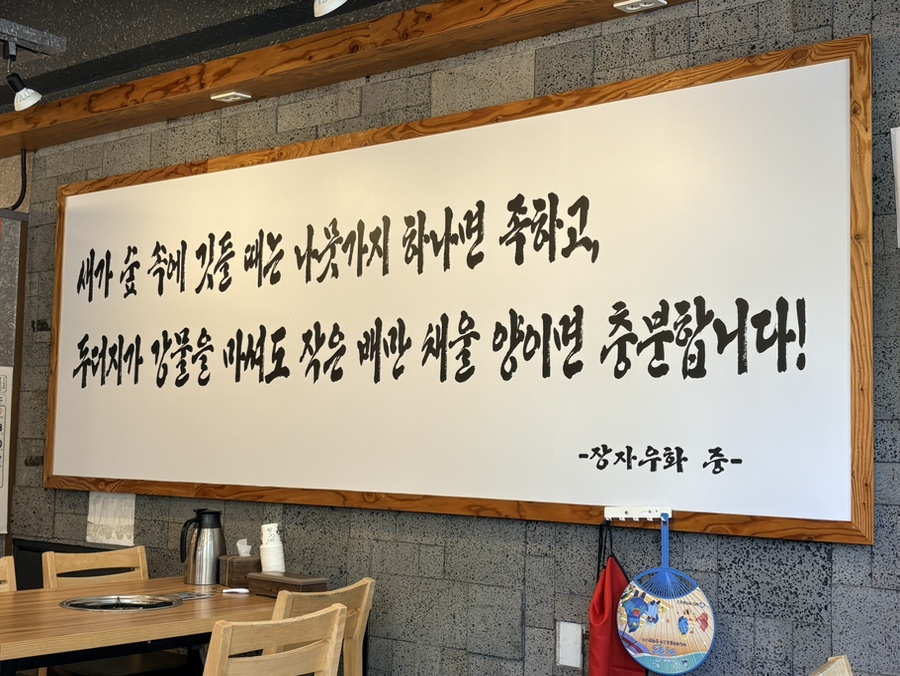 새가 숲 속에 깃들 때는 나뭇가지 하나면 족하고,
두더지가 강물을 마셔도 작은 배만 채울 양이면 충분합니다!
-장자우화 중-